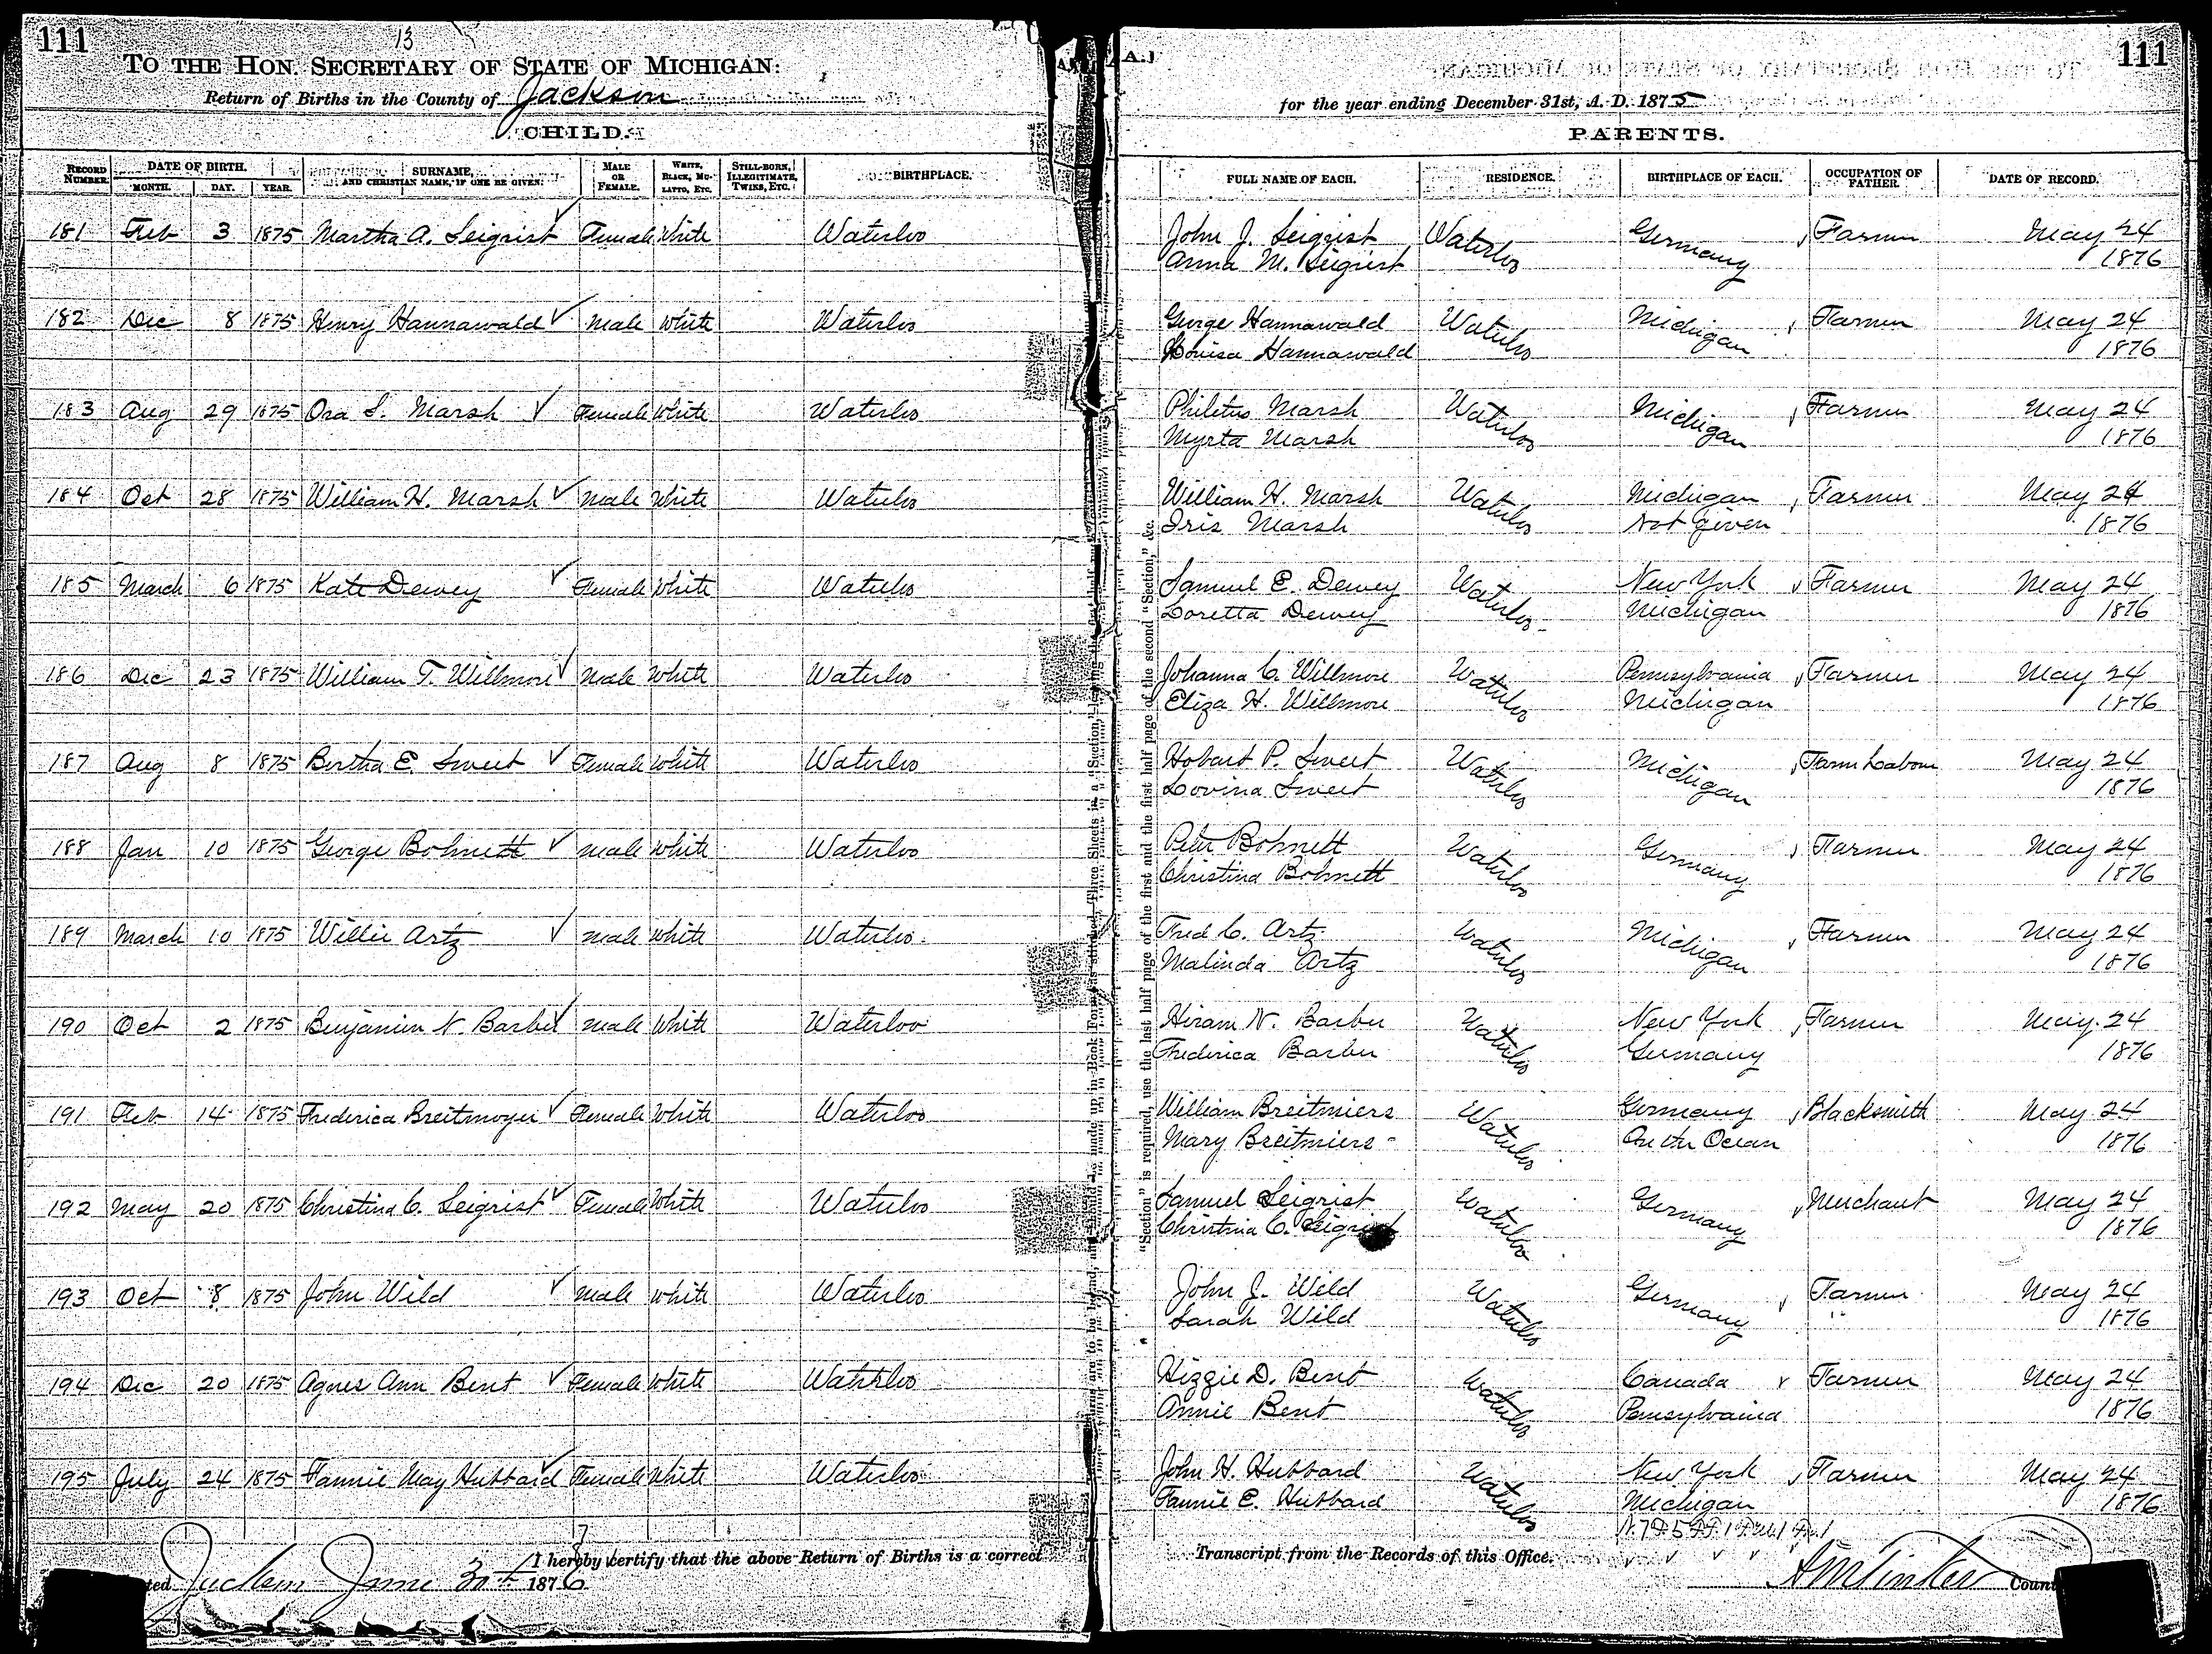 111
13
TO THE HON. SECRETARY OF STATE OF MICHIGAN:
Return of Births in the County of Jackson
CHILD.
RECORD NUMBER. DATE OF BIRTH. MONTH. DAY. YEAR. SURNAME, AND CHRISTIAN NAME, IF ONE BE GIVEN. MALE OR FEMALE. WHITE, BLACK, MULATTO, ETC. STILL-BORN, ILLEGITIMATE, TWINS, ETC. BIRTHPLACE.
111
for the year ending December 31st, A. D. 1875
PARENTS.
FULL NAME OF EACH. RESIDENCE. BIRTHPLACE OF EACH. OCCUPATION OF FATHER. DATE OF RECORD.
181 Feb 3 1875 Martha A. Seigrist Female White Waterloo John J. Seigrist Waterloo Germany Farmer May 24
Anna M. Seigrist 1876
182 Dec 8 1875 Henry Hannawald Male White Waterloo George Hannawald Waterloo Michigan Farmer May 24
Louisa Hannawald 1876
183 Aug 29 1875 Ora S. Marsh Female White Waterloo Philetus Marsh Waterloo Michigan Farmer May 24
Myrta Marsh 1876
184 Oct 28 1875 William H. Marsh Male White Waterloo William H. Marsh Waterloo Michigan Farmer May 24
Iris Marsh Not Given 1876
185 March 6 1875 Kate Dewey Female White Waterloo Samuel E. Dewey Waterloo New York Farmer May 24
Loretta Dewey Michigan 1876
186 Dec 23 1875 William T. Willmore Male White Waterloo Johanna C. Willmore Waterloo Pennsylvania Farmer May 24
Eliza H. Willmore Michigan 1876
187 Aug 8 1875 Bertha E. Sweet Female White Waterloo Hobart P. Sweet Waterloo Michigan Farm Labour May 24
Lovina Sweet 1876
188 Jan 10 1875 George Bohnett Male White Waterloo Peter Bohnett Waterloo Germany Farmer May 24
Christina Bohnett 1876
189 March 10 1875 Willie Artz Male White Waterloo Fred C. Artz Waterloo Michigan Farmer May 24
Malinda Artz 1876
190 Oct 2 1875 Benjamin N. Barber Male White Waterloo Hiram N. Barber Waterloo New York Farmer May 24
Frederica Barber Germany 1876
191 Feb 14 1875 Frederica Breitmoyer Female White Waterloo William Breitmiers Waterloo Germany Blacksmith May 24
Mary Breitmiers On the Ocean 1876
192 May 20 1875 Christina C. Seigrist Female White Waterloo Samuel Seigrist Waterloo Germany Merchant May 24
Christina C. Seigrist 1876
193 Oct 8 1875 John Wild Male White Waterloo John J. Wild Waterloo Germany Farmer May 24
Sarah Wild 1876
194 Dec 20 1875 Agnes Ann Bent Female White Waterloo Hizzie D. Bent Waterloo Canada Farmer May 24
Annie Bent Pensylvania 1876
195 July 24 1875 Fannie May Hubbard Female White Waterloo John H. Hubbard Waterloo New York Farmer May 24
Fannie E. Hubbard Michigan 1876
I hereby certify that the above Return of Births is a correct Transcript from the Records of this Office.
Jackson June 30th 1876
"Section" is required, use the last half page of the first and the first half page of the second "Section," &c.